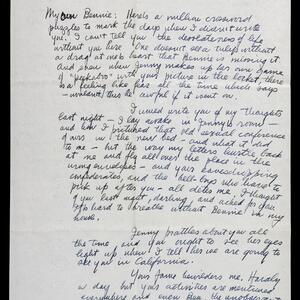 My own Bennie: Here's a million crossword
puzzles to mark the days when I didn't write
you. I can't tell you the desolateness of life
without you here. One doesn't see a tulip without
a drag at one's heart that Bennie is missing it.
And when Jenny makes up her own game
of "peekabo" with your picture in the locket, there
is a feeling like fear all the time which says
wouldn't this be awful if it went on.
I must write you of my thoughts
last night - I lay awake in Jenny's room
and how I
of ours in the new bed - and what it did
to me - but the way my letters hustle back
at me and fly all over the place in the
wrong envelopes - and your eavesdropping
confederates, and the bell-hops who have to
pick up after you - all deter me. I thought
of you last night, darling, and ached for
hard to breathe without Bennie in my
house.
Jenny prattles about you all
the time, and you ought to see her eyes
light up when I tell her we are going to
see you in California.
Your fame bewilders me. Hardly
a day but your activities are mentioned
everywhere and even